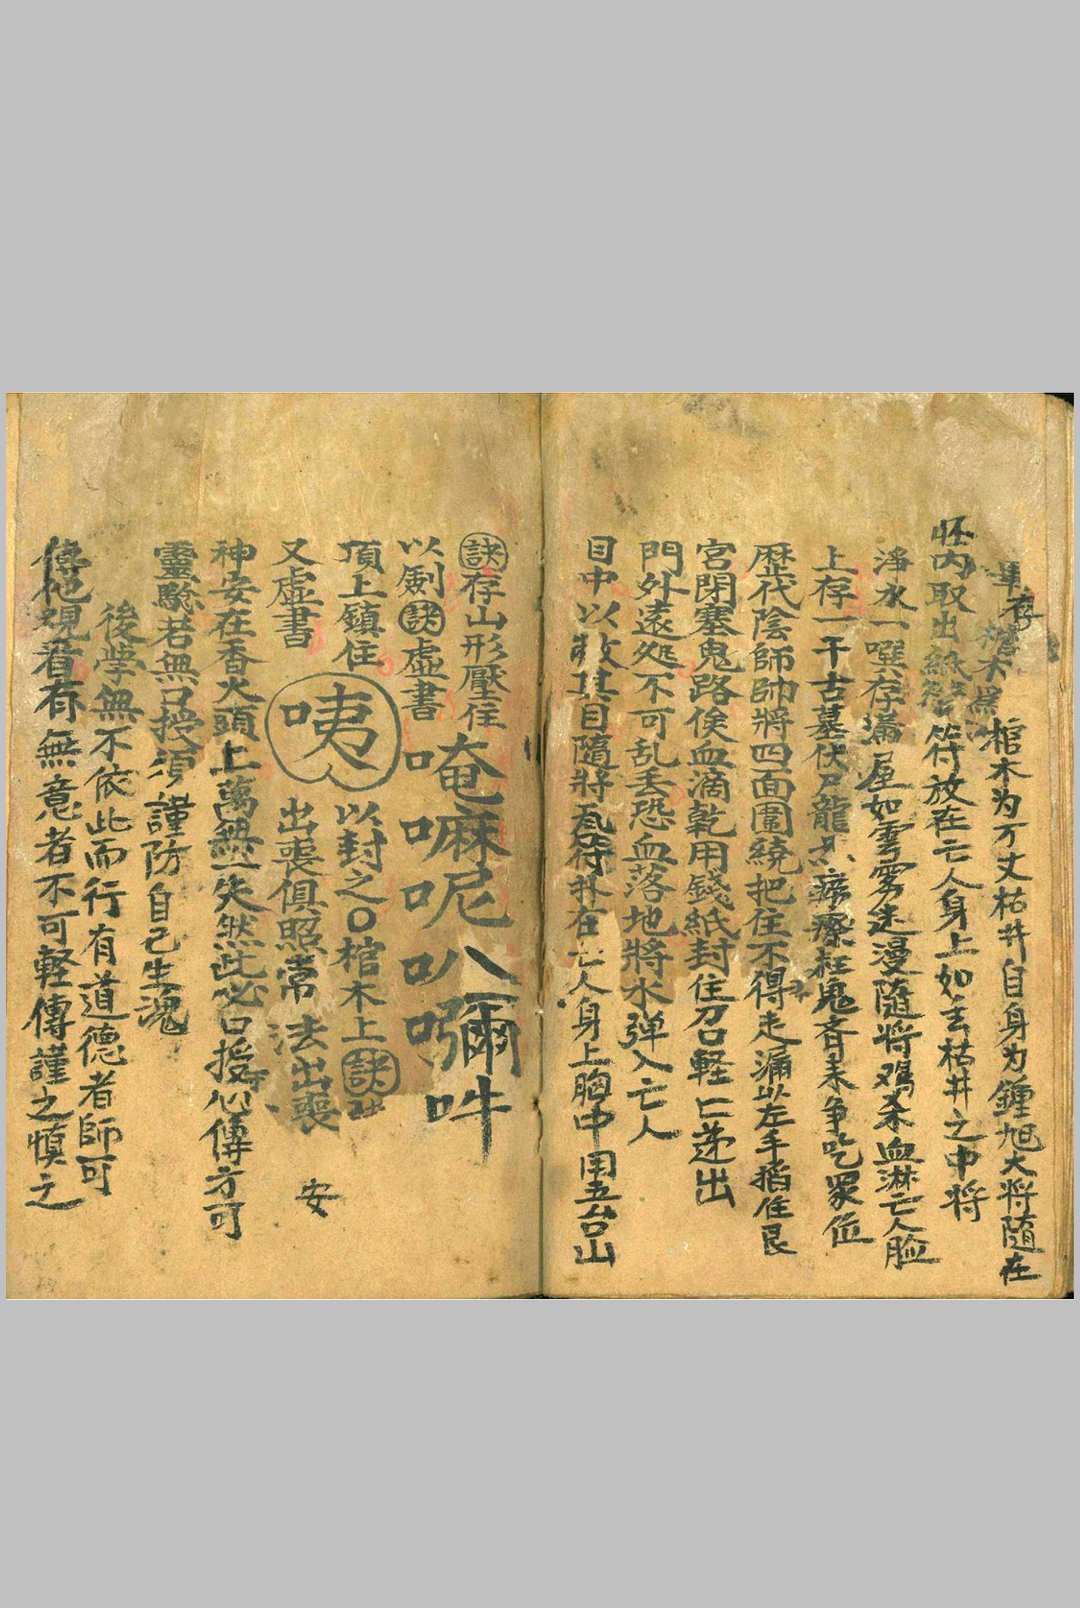 畢存 棺木为万丈枯井自身为鍾旭大将隨在
怀内取出紙 符放在亡人身上如丢枯井之中将
淨水一噀存滿屋如雲雾迷漫隨将鸡杀血淋亡人脸
上存一千古墓伏尸龍 痨瘵枉鬼齐来争吃眾位
歷代陰師帥將四面圍繞把住不得走漏以左手掐住艮
宮閉塞鬼路俟血滴乾用錢紙封住刀口軽仁递出
門外遠処不可乱丢恐血落地將水弹入亡人
目中以敝其目隨將 符 在亡人身上胸中用五台山
訣存山形壓住
以劍訣虛書 唵嘛呢叭囄吽
頂上鎮住 以封之〇棺木上訣
又虛書 咦 出喪俱照常法出喪 安
神安在香火頭上萬無一失然此必口授心傳方可
靈驗若無口授須謹防自己生魂
後学無不依此而行有道德者師可
傳他視看有無意者不可軽傳謹之慎之